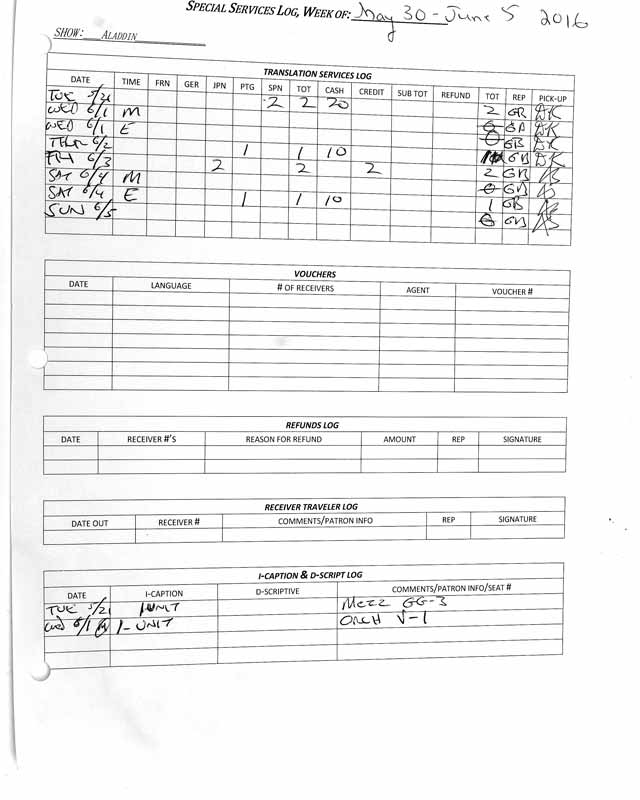 SPECIAL SERVICES LOG, WEEK OF: May 30 - June 5 2016
SHOW: ALADDIN
TRANSLATION SERVICES LOG
DATE TIME FRN GER JPN PTG SPN TOT CASH CREDIT SUB TOT REFUND TOT REP PICK-UP
TUE 5/31 2 2 20 2 GB DK
WED 6/1 M 0 GB DK
WED 6/1 E 0 GB DK
THUR 6/2 1 1 10 1 GB DK
FRI 6/3 2 2 2 2 GB AS
SAT 6/4 M 0 GB AS
SAT 6/4 E 1 1 10 1 GB AS
SUN 6/5 0 GB AS
VOUCHERS
DATE LANGUAGE # OF RECEIVERS AGENT VOUCHER #
REFUNDS LOG
DATE RECEIVER #'S REASON FOR REFUND AMOUNT REP SIGNATURE
RECEIVER TRAVELER LOG
DATE OUT RECEIVER # COMMENTS/PATRON INFO REP SIGNATURE
I-CAPTION & D-SCRIPT LOG
DATE I-CAPTION D-SCRIPTIVE COMMENTS/PATRON INFO/SEAT #
TUE 5/31 1 UNIT MEZZ GG-3
WED 6/1 M 1-UNIT ORCH V-1